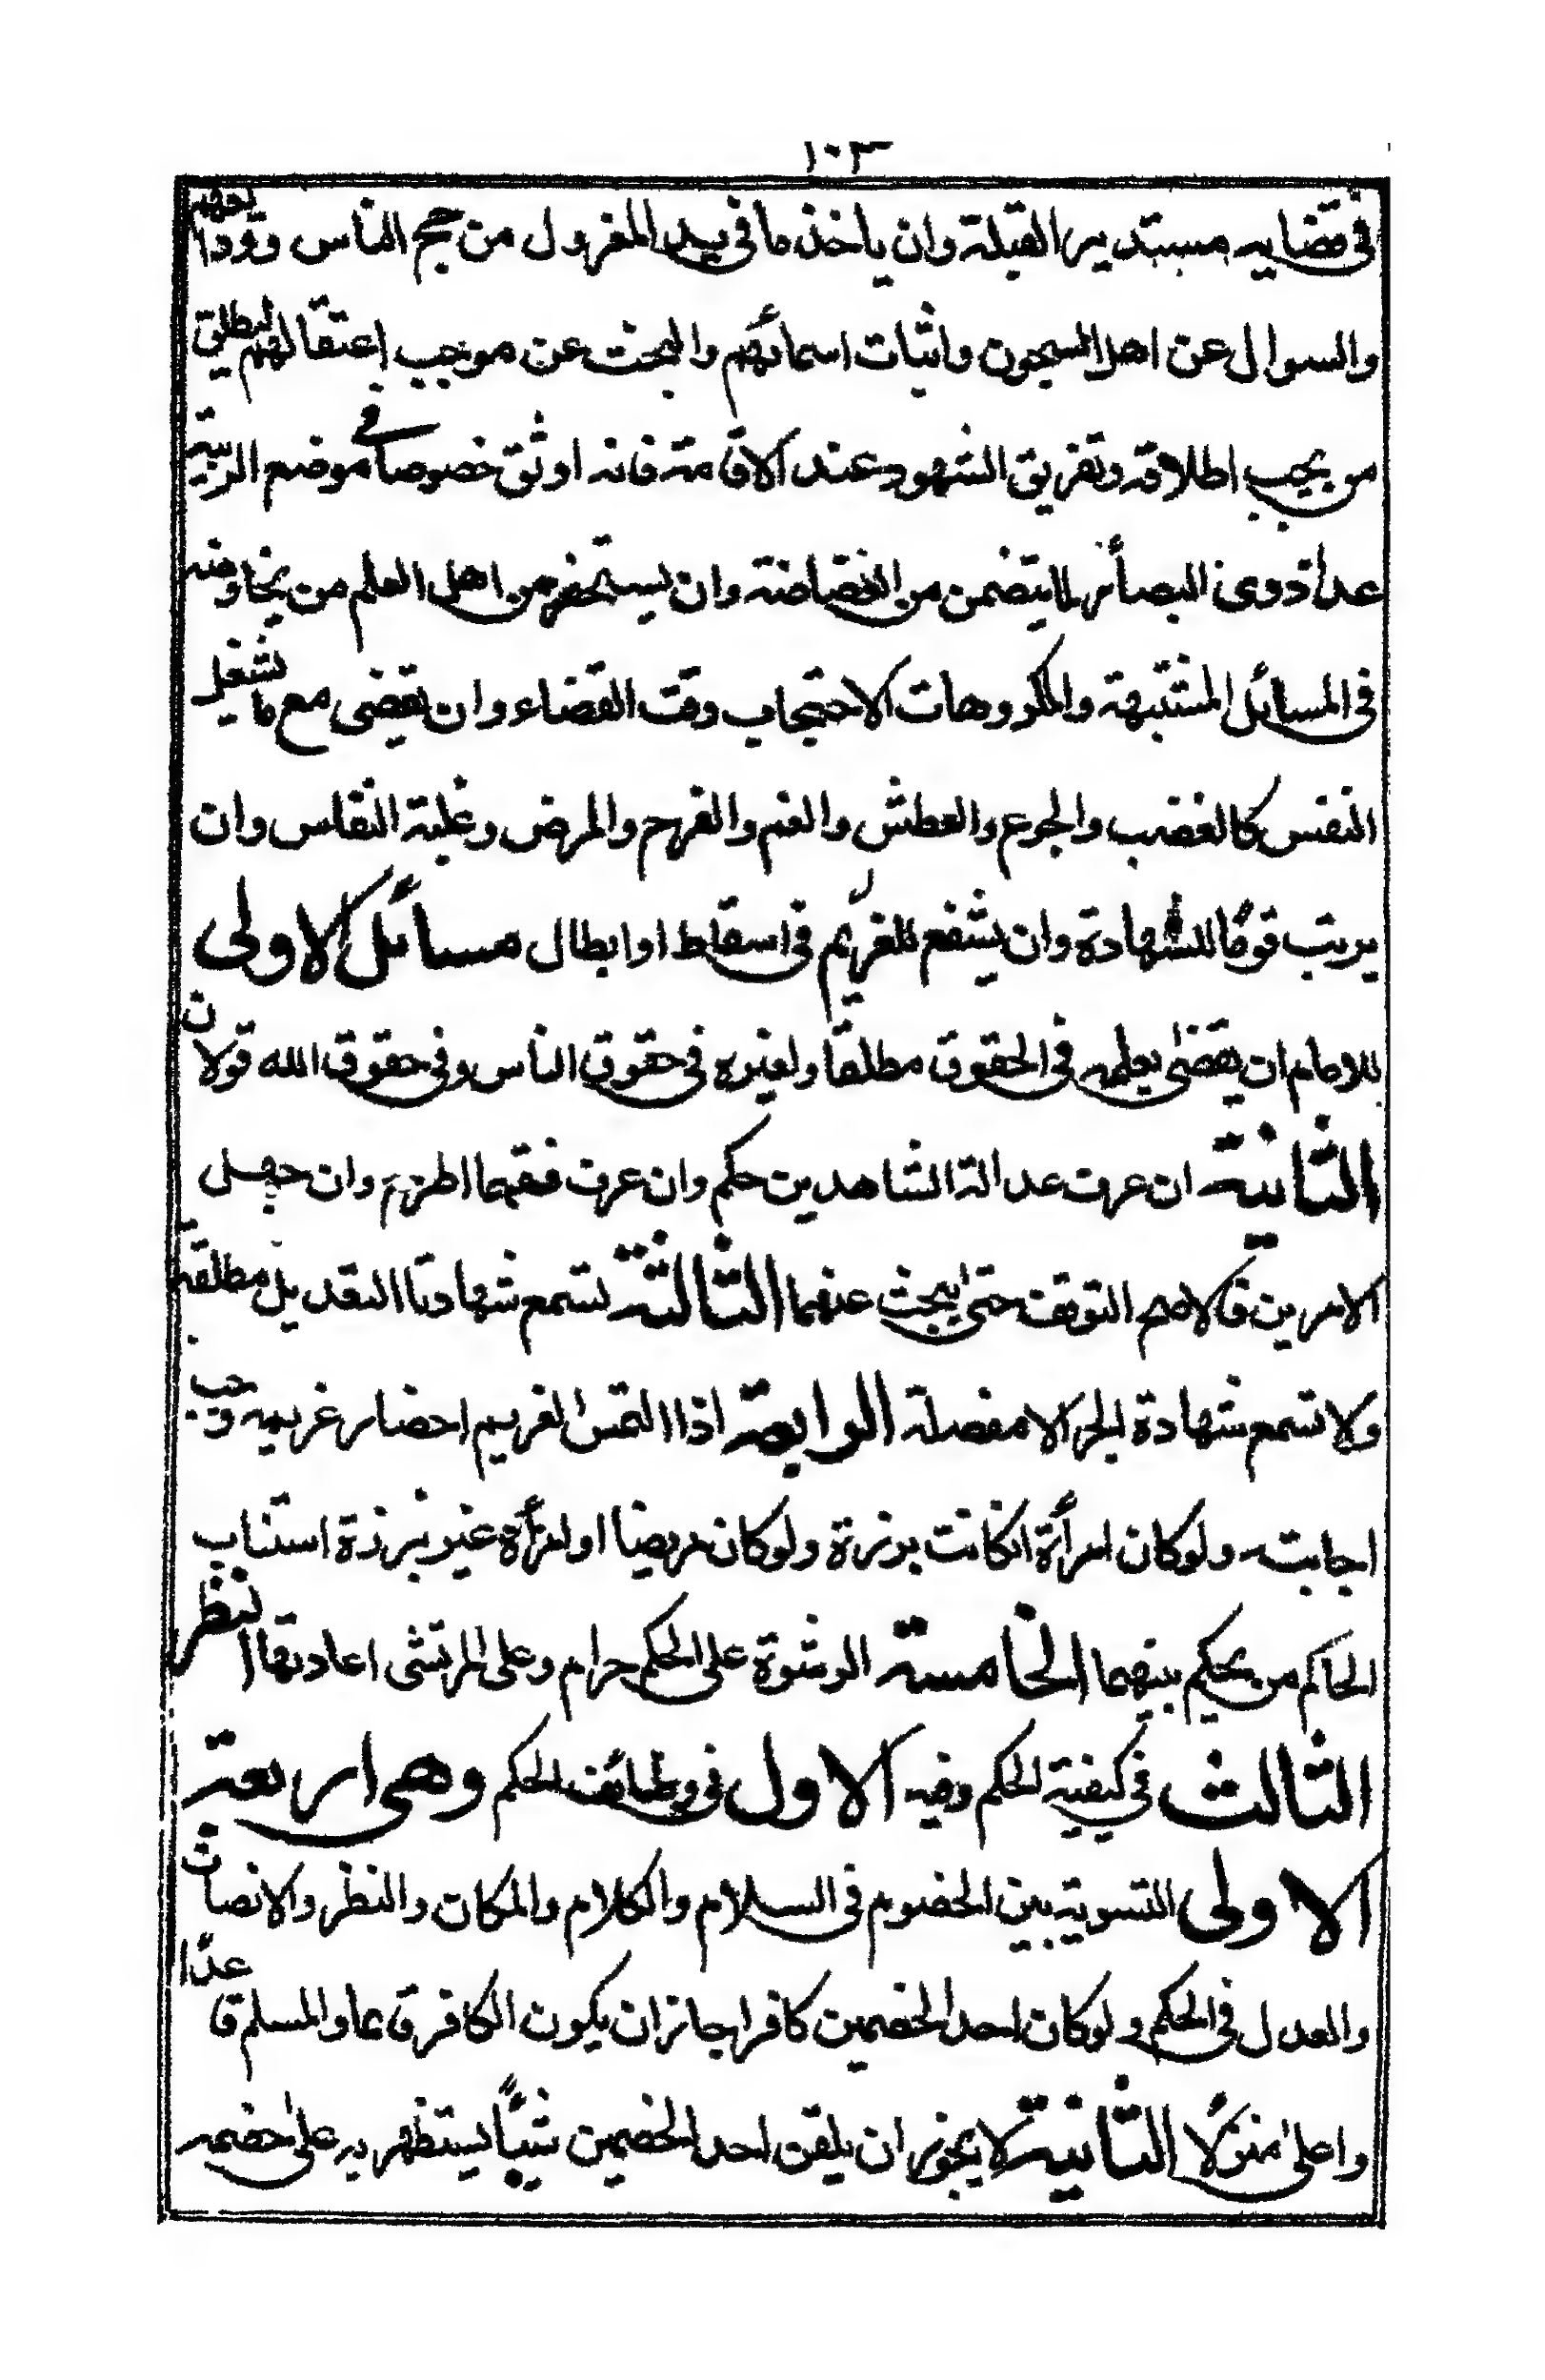 ١٠٣
في قضايه مستدير القبلة وان ياخذ ما في يد المعزول من حجج الناس وودايعهم
والسوال عن اهل السجون واثبات اسمائهم والبحث عن موجب اعتقالهم ليطلق
من يجب اطلاقه وتفريق الشهود عند الاقامة فانه اوثق خصوصا في موضع الريبة
عدا ذوى البصائر لما يتضمن من الغضاضة وان يستحضر من اهل العلم من يخاوضه
في المسائل المشتبهة والمكروهات الاحتجاب وقت القضاء وان يقضى مع ما يشغل
النفس كالغضب والجوع والعطش والغم والفرح والمرض وغلبة النعاس وان
يرتب قومًا للشهادة وان يشفع للغريم في اسقاط او ابطال مسائل الاولى
للامام ان يقضى بعلمه في الحقوق مطلقا ولغيره في حقوق الناس وفي حقوق الله قولان
الثانية ان عرف عدالة الشاهدين حكم وان عرف فسقهما اطرح وان جهل
الامرين فالاصح التوقف حتى يبحث عنهما الثالثة تسمع شهادتا التعديل مطلقة
ولا تسمع شهادة الجرح الا مفصلة الرابعة اذا التمس الغريم احضار غريمه وجب
اجابته ولو كان امرأة انكانت برزة ولو كان مريضا او امرأة غير برزة استناب
الحاكم من يحكم بينهما الخامسة الرشوة على الحكم حرام وعلى المرتشى اعادتها النظر
الثالث في كيفية الحكم وفيه الاول في وظائف الحكم وهى اربعة
الاولى التسوية بين الخصوم في السلام والكلام والمكان والنظر والانصات
والعدل في الحكم ولو كان احد الخصمين كافرا جاز ان يكون الكافر قائما والمسلم قاعدًا
واعلى منزلًا الثانية لا يجوز ان يلقن احد الخصمين شيئًا يستظهر به على خصمه